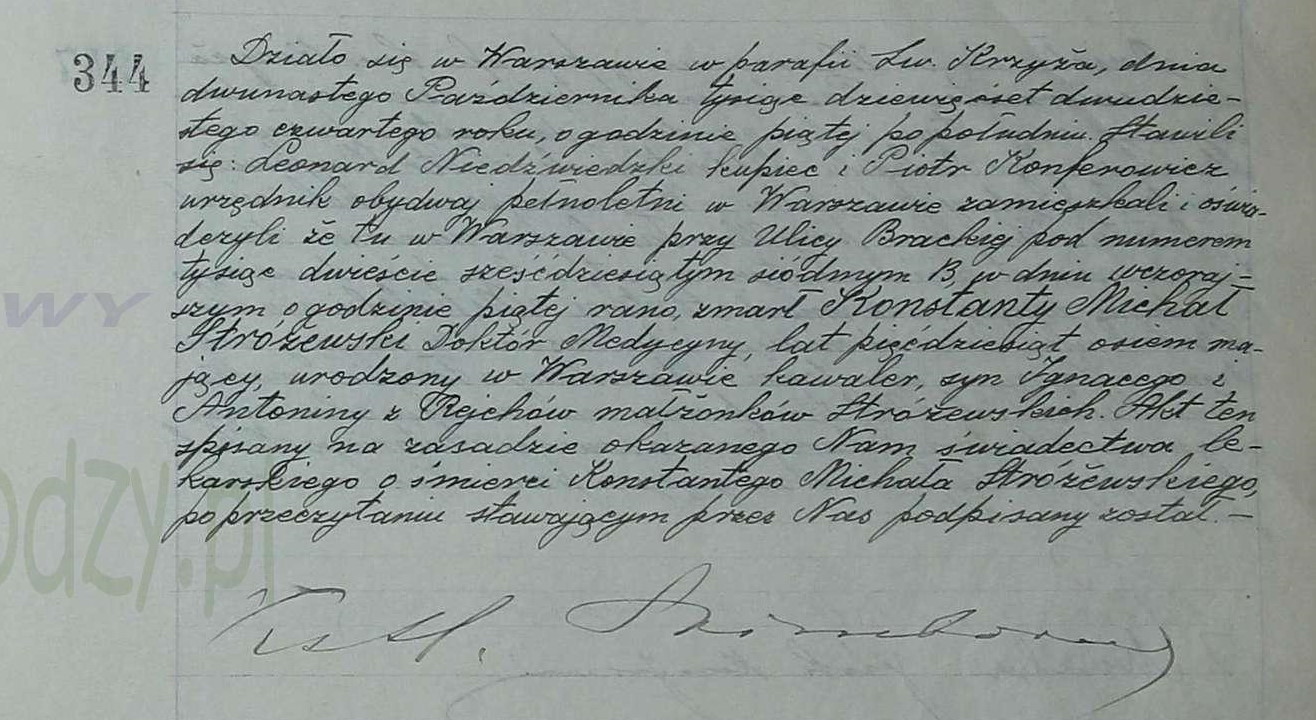 344
Działo się w Warszawie w parafii Św. Krzyża, dnia
dwunastego Października tysiąc dziewięćset dwudzie-
stego czwartego roku, o godzinie piątej po południu. Stawili
się: Leonard Niedźwiedzki kupiec i Piotr Konferowicz
urzędnik obydwaj pełnoletni w Warszawie zamieszkali i oświa-
dczyli że tu w Warszawie przy Ulicy Brackiej pod numerem
tysiąc dwieście sześćdziesiątym siódmym B, w dniu wczoraj-
szym o godzinie piątej rano, zmarł Konstanty Michał
WY
Stróżewski Doktór Medycyny, lat pięćdziesiąt osiem ma-
jący, urodzony w Warszawie kawaler, syn Ignacego i
Antoniny z Rejchów małżonków Stróżewskich. Akt ten
spisany na zasadzie okazanego Nam świadectwa le-
karskiego o śmierci Konstantego Michała Stróżewskiego,
po przeczytaniu stawającym przez Nas podpisany został. —
odzy.pl